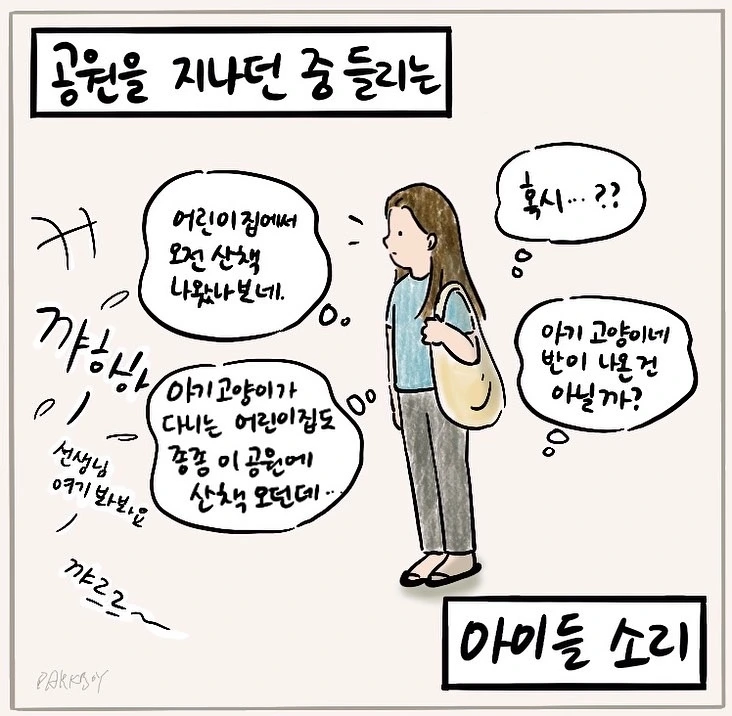 공원을 지나던 중 들리는
어린이집에서
오전 산책
나왔나보네.
혹시…??
꺄하하
아기고양이가
다니는 어린이집도
종종 이 공원에
산책 오던데…
아기 고양이네
반이 나온 건
아닐까?
선생님
여기 봐봐요
꺄르르~
아이들 소리
PARKBOY